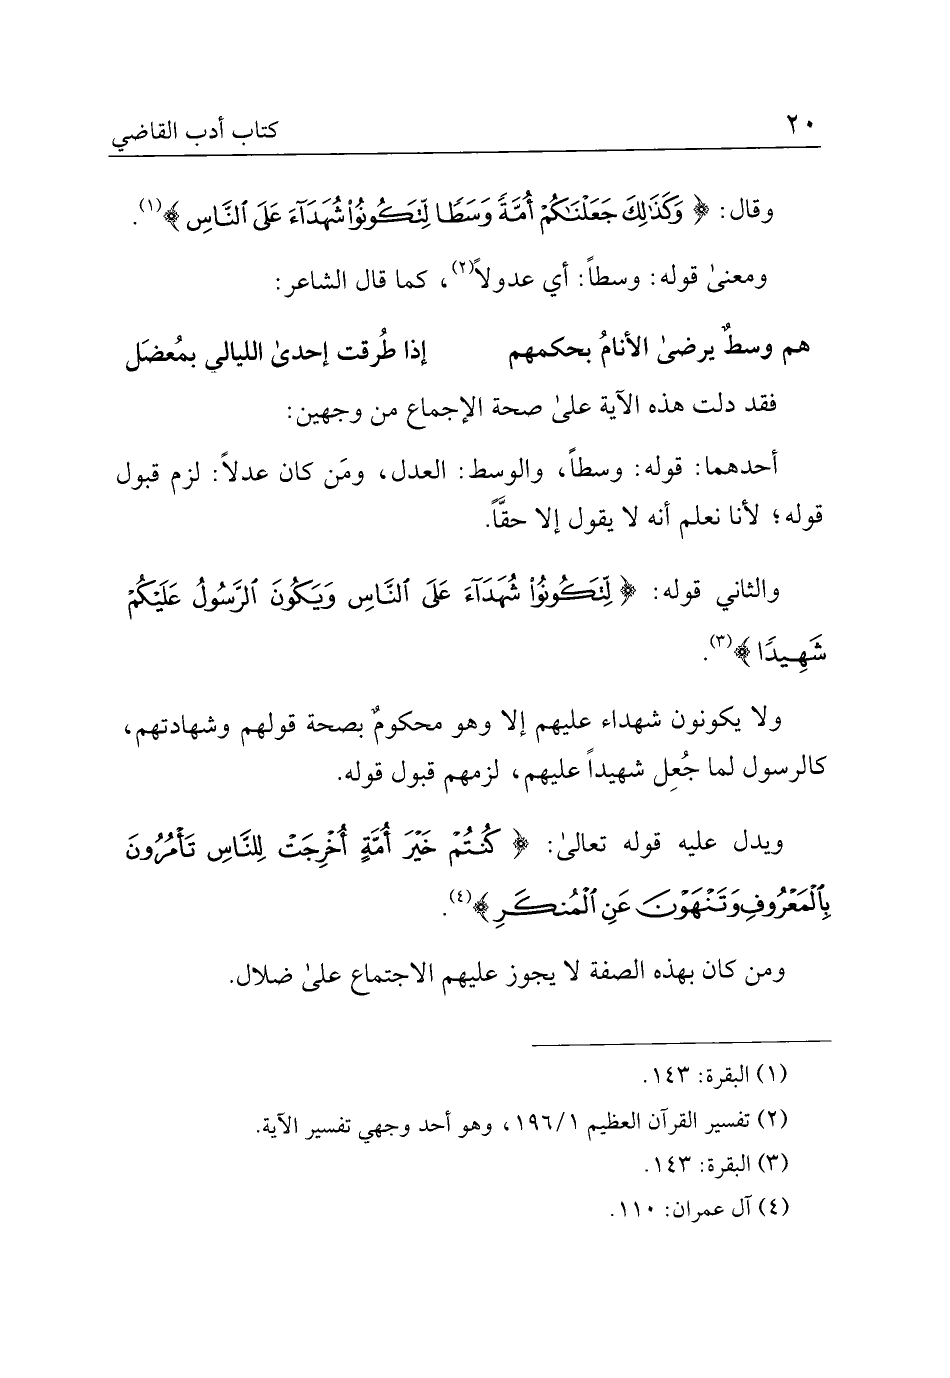 ٢٠ كتاب أدب القاضي
وقال: ﴿ وَكَذَٰلِكَ جَعَلْنَٰكُمْ أُمَّةً وَسَطًا لِّتَكُونُوا۟ شُهَدَآءَ عَلَى ٱلنَّاسِ ﴾(١).
ومعنىٰ قوله: وسطاً: أي عدولاً(٢)، كما قال الشاعر:
هم وسطٌ يرضىٰ الأنامُ بحكمهم إذا طُرقت إحدىٰ الليالي بمُعضَل
فقد دلت هذه الآية علىٰ صحة الإجماع من وجهين:
أحدهما: قوله: وسطاً، والوسط: العدل، ومَن كان عدلاً: لزم قبول
قوله؛ لأنا نعلم أنه لا يقول إلا حقَّاً.
والثاني قوله: ﴿ لِّتَكُونُوا۟ شُهَدَآءَ عَلَى ٱلنَّاسِ وَيَكُونَ ٱلرَّسُولُ عَلَيْكُمْ
شَهِيدًا ﴾(٣).
ولا يكونون شهداء عليهم إلا وهو محكومٌ بصحة قولهم وشهادتهم،
كالرسول لما جُعِل شهيداً عليهم، لزمهم قبول قوله.
ويدل عليه قوله تعالىٰ: ﴿ كُنتُمْ خَيْرَ أُمَّةٍ أُخْرِجَتْ لِلنَّاسِ تَأْمُرُونَ
بِٱلْمَعْرُوفِ وَتَنْهَوْنَ عَنِ ٱلْمُنكَرِ ﴾(٤).
ومن كان بهذه الصفة لا يجوز عليهم الاجتماع علىٰ ضلال.
(١) البقرة: ١٤٣.
(٢) تفسير القرآن العظيم ١٩٦/١، وهو أحد وجهي تفسير الآية.
(٣) البقرة: ١٤٣.
(٤) آل عمران: ١١٠.